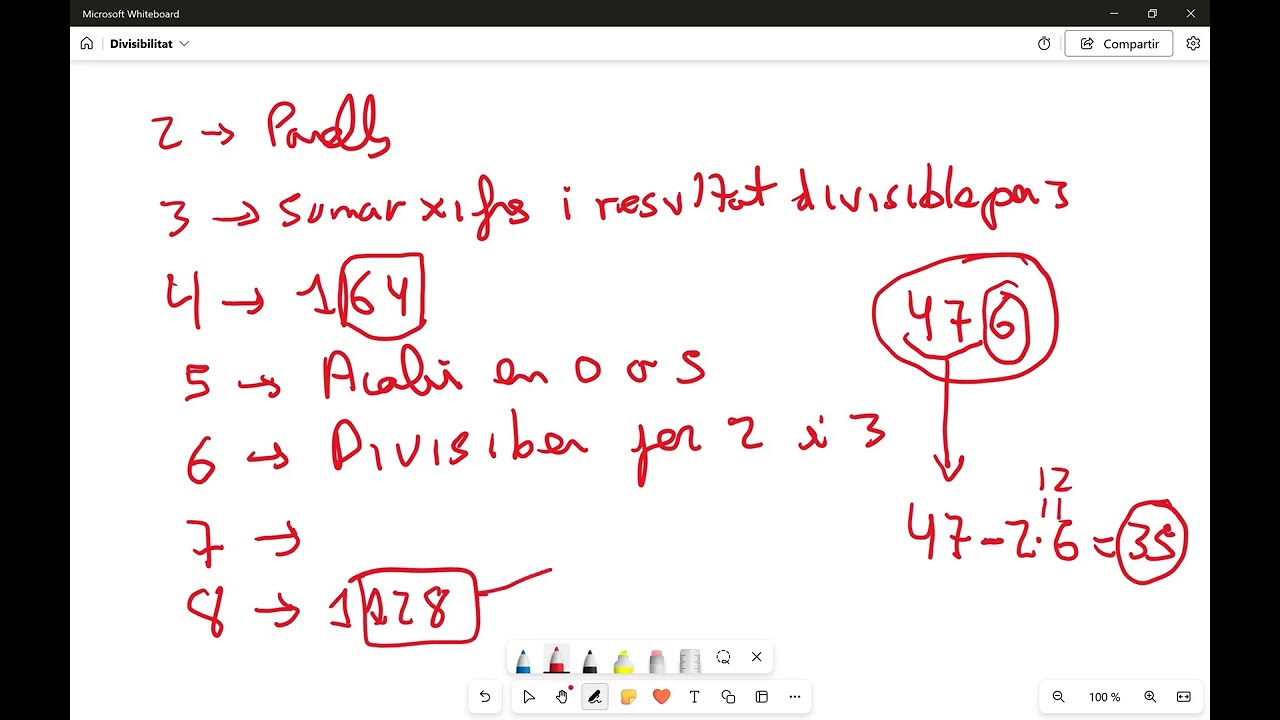 Microsoft Whiteboard
Divisibilitat
Compartir
2 → Parells
3 → Sumar xifres i resultat divisible per 3
4 → 164
476
5 → Acabi en 0 o 5
6 → Divisibles per 2 i 3
12
47-2·6=35
7 →
8 → 1128
100 %